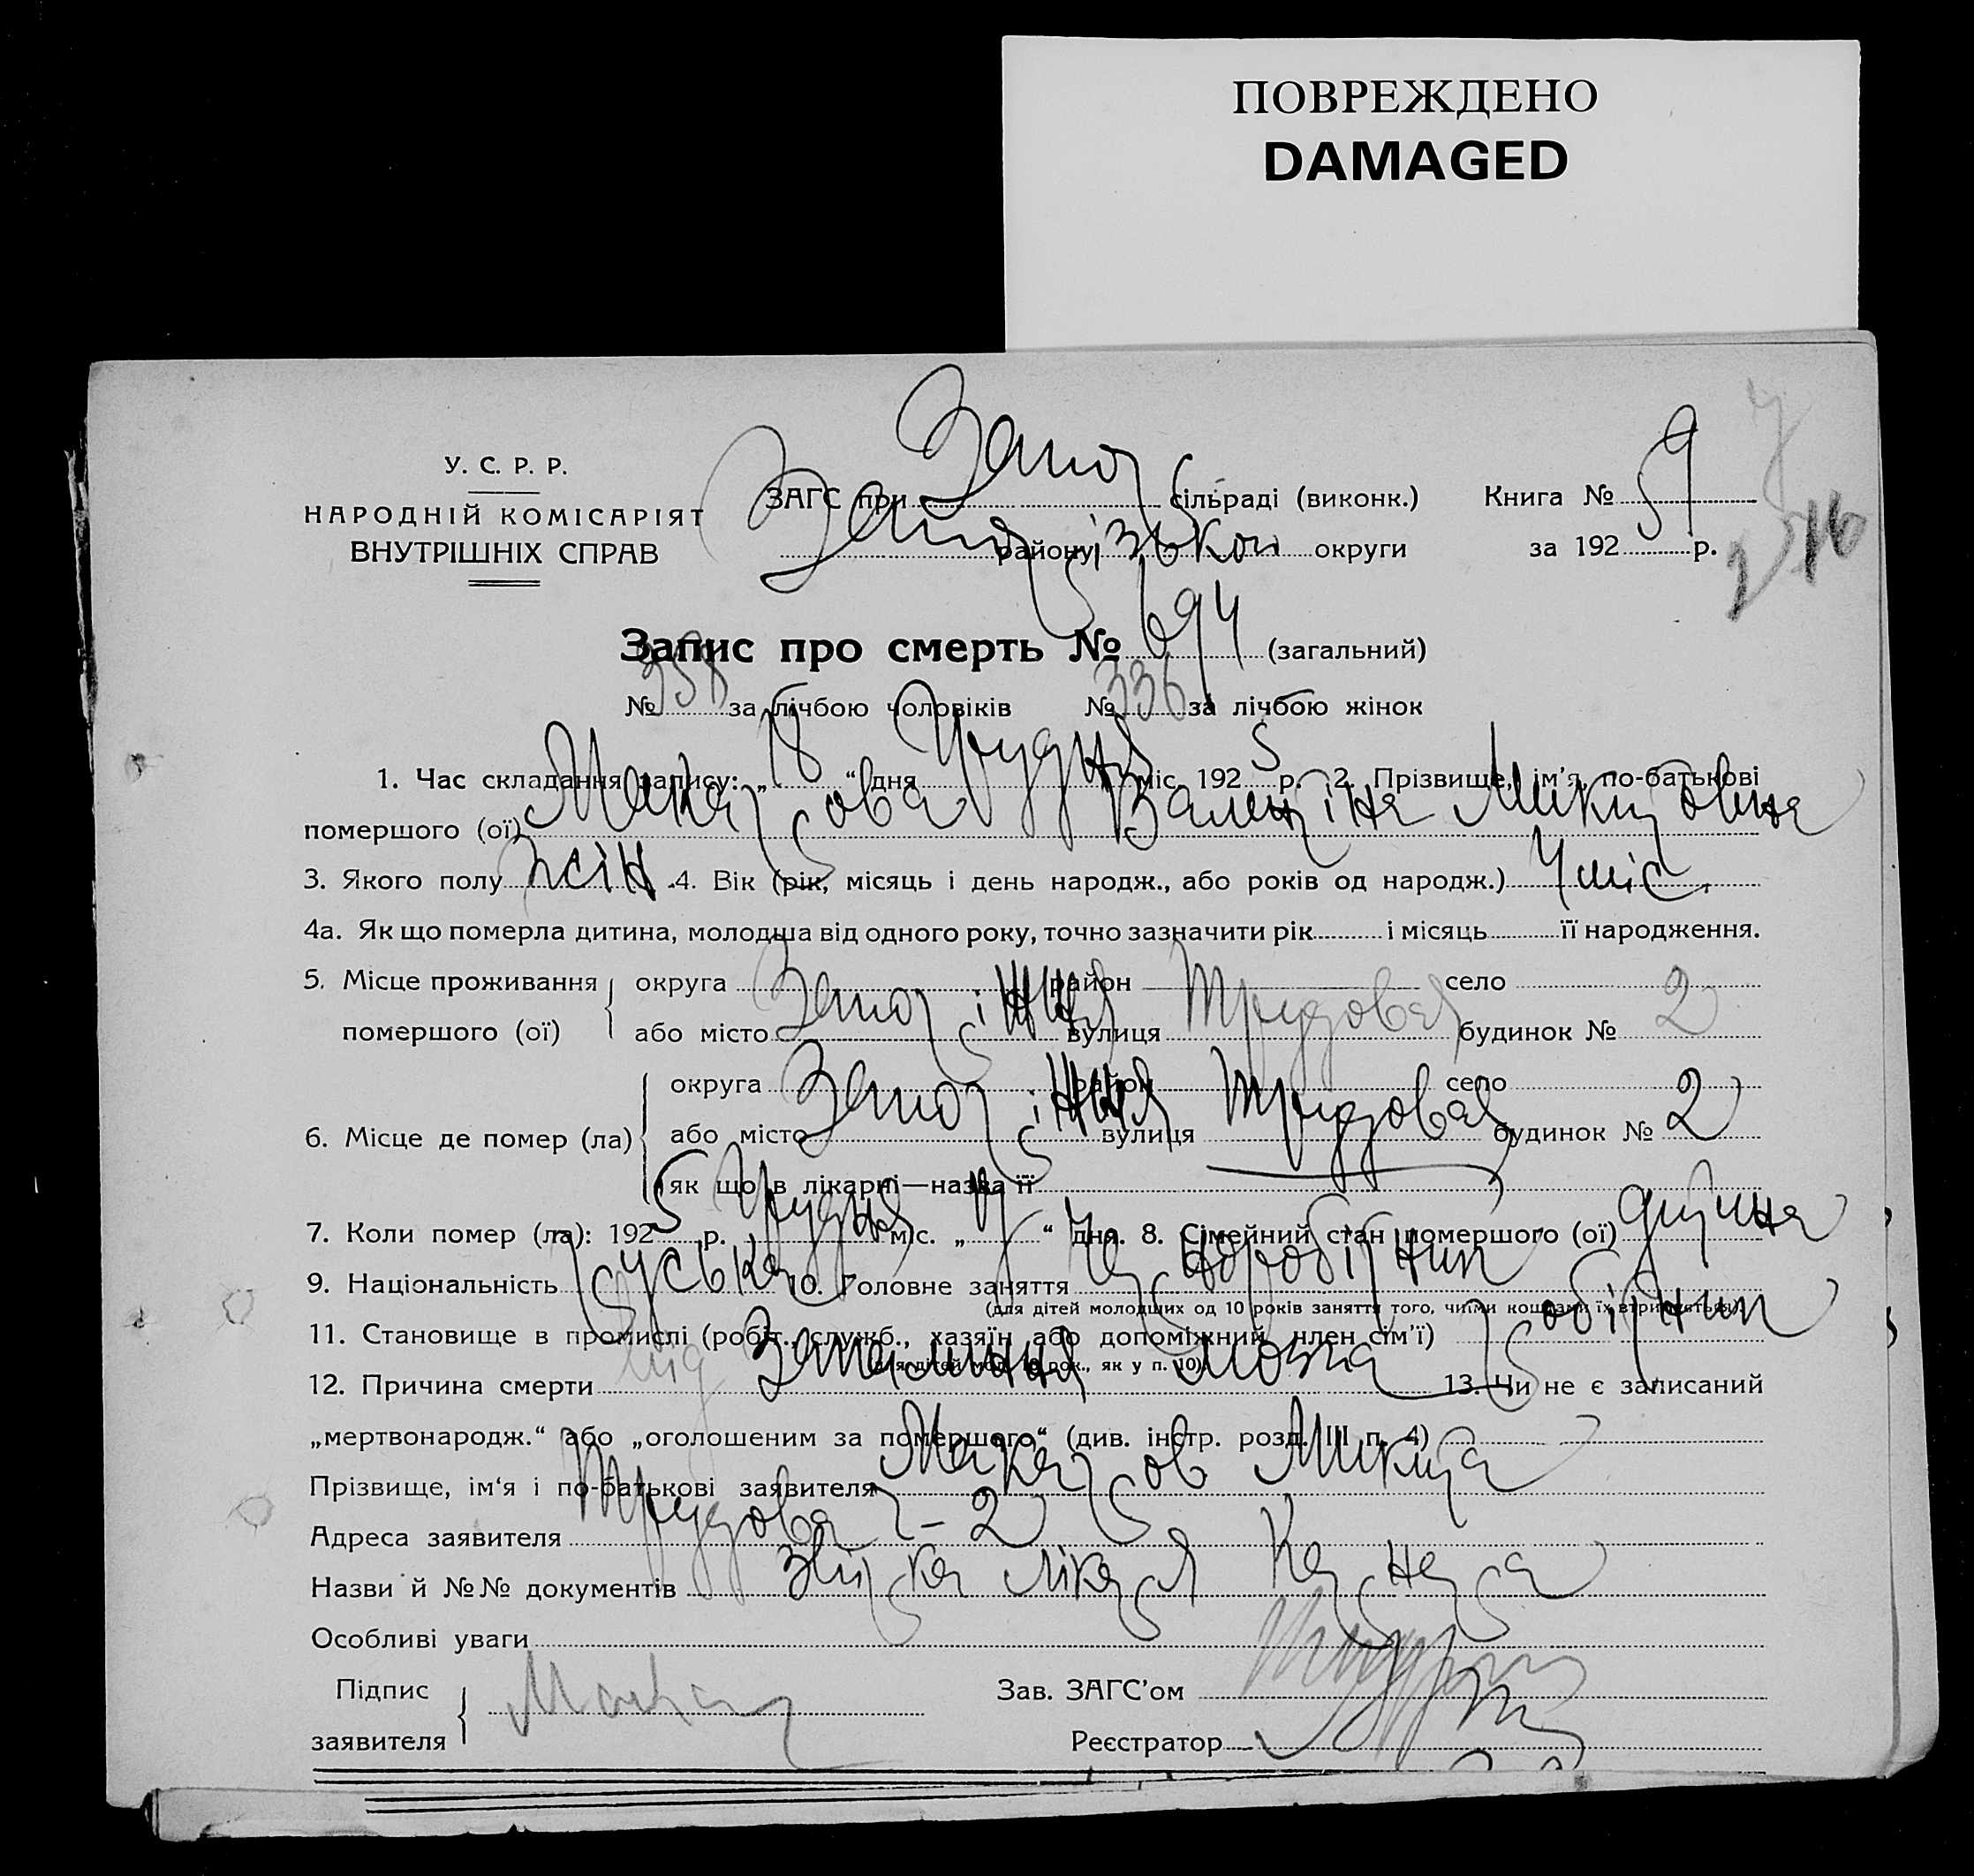 ПОВРЕЖДЕНО
DAMAGED
У. С. Р. Р.
НАРОДНІЙ КОМІСАРІЯТ
ВНУТРІШНІХ СПРАВ
ЗАГС при Запор сільраді (виконк.)
Запорізької району округи
Книга № 9
за 1925 р.
Запис про смерть № 694 (загальний)
№ 358 за лічбою чоловіків № 336 за лічбою жінок
1. Час складання запису: „18“ дня Грудня міс. 1925 р. 2. Прізвище, ім'я, по-батькові
помершого (ої) Макарова Валентіна Микитовна
3. Якого полу жін. 4. Вік (рік, місяць і день народж., або років од народж.) 4 міс.
4а. Як що померла дитина, молодша від одного року, точно зазначити рік і місяць її народження.
5. Місце проживання округа район село
помершого (ої) або місто Запоріжжя вулиця Трудовая будинок № 2
округа район село
6. Місце де помер (ла) або місто Запоріжжя вулиця Трудовая будинок № 2
як що в лікарні—назва її
7. Коли помер (ла): 1925 р. Грудня міс. „17“ дня. 8. Сімейний стан помершого (ої) дитина
9. Національність руська 10. Головне заняття чорноробітник
(для дітей молодших од 10 років заняття того, чиїми коштами їх втримується).
11. Становище в промислі (робіт., служб., хазяїн або допоміжний член сім'ї) робітник
(для дітей мол. 10 рок., як у п. 10)
12. Причина смерти Від Запалення мозка 13. Чи не є записаний
„мертвонародж.“ або „оголошеним за помершого“ (див. інстр. розд. III п. 4)
Прізвище, ім'я і по-батькові заявителя Макаров Микита
Адреса заявителя Трудова - 2
Назви й №№ документів лікаря
Особливі уваги
Підпис
заявителя Макар
Зав. ЗАГС'ом
Реєстратор